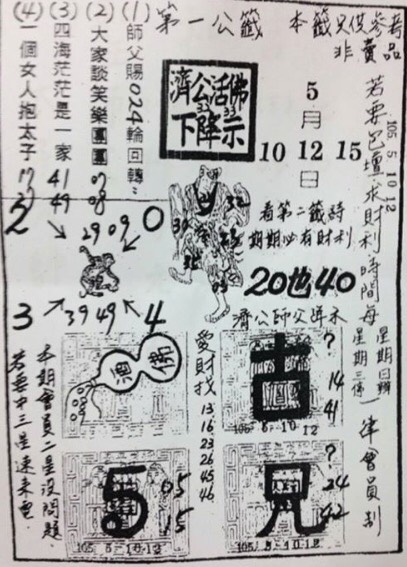 第一公籤
本籤只供參考
非賣品
若要包壇求財利時間每
星期日辦
星期三停
一律會員制
105 5 10 12
(1)師父賜024輪回轉"
(2)大家談笑樂團團
(3)四海茫茫是一家
(4)一個女人抱太子
07
08
41
49
濟公活佛
下降示
33
5
月
10 12 15
日
看第二籤時
期期必有財利
20也40
濟公師父降示
2 0
29 09
39 49
3 4
32
愛財找
13
16
23
26
45
46
古
?
14
41
105-5-10.12
5
05
15
105 5-10-12
兄
?
24
42
105 5-10-12
本期會員二星沒問題
若要中三星速來電.